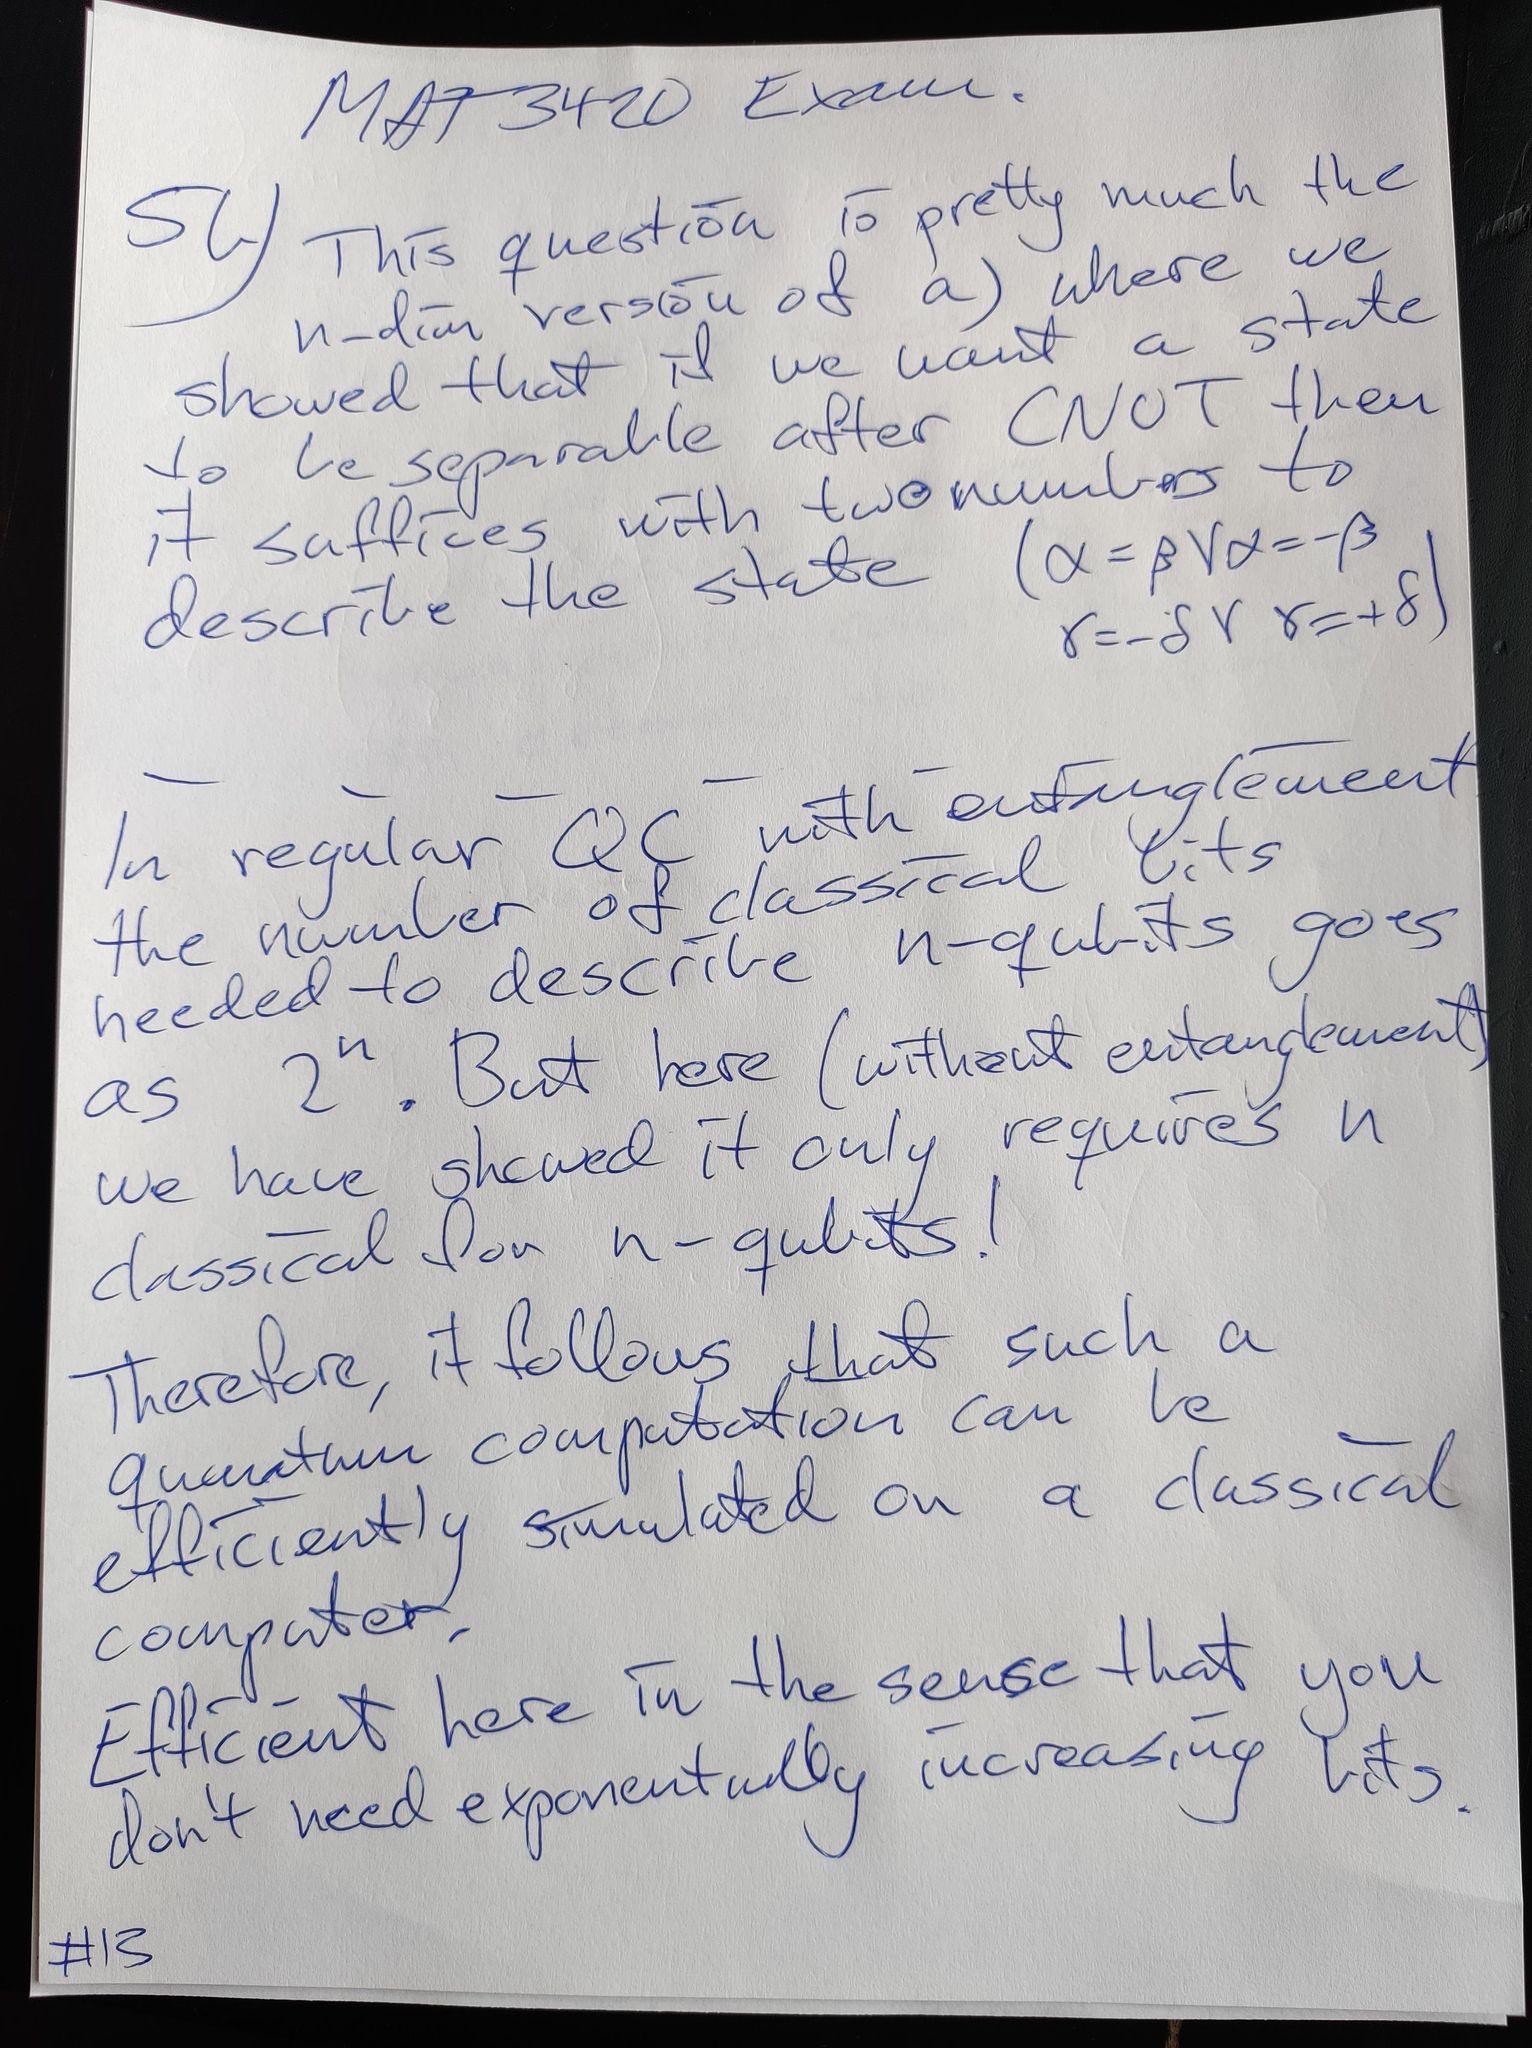 MAT3420 Exam.
5b) This question is pretty much the
n-dim version of a) where we
showed that if we want a state
to be separable after CNOT then
it suffices with two numbers to
describe the state (α=β∨α=-β
γ=-δ∨γ=+δ)
In regular QC with entanglement
the number of classical bits
needed to describe n-qubits goes
as 2ⁿ. But here (without entanglement)
we have showed it only requires n
classical for n-qubits!
Therefore, it follows that such a
quantum computation can be
efficiently simulated on a classical
computer.
Efficient here in the sense that you
don't need exponentially increasing bits.
#13